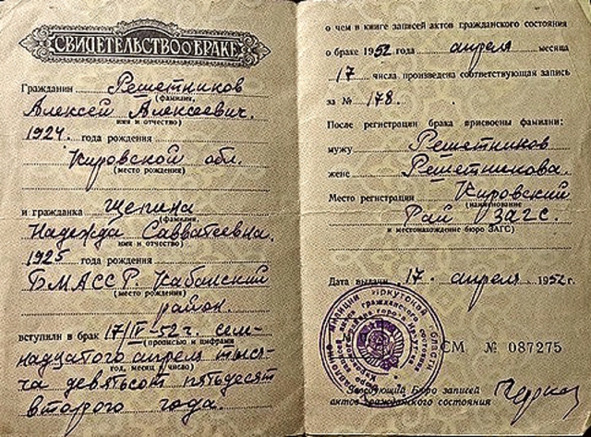 СВИДЕТЕЛЬСТВО О БРАКЕ
Гражданин Решетников
(фамилия,
Алексей Алексеевич.
имя и отчество)
1924. года рождения
Кировской обл.
(место рождения)
и гражданка Щепина
(фамилия,
Надежда Савватеевна.
имя и отчество)
1925 года рождения
БМАССР. Кабанский
(место рождения)
район.
вступили в брак 17/IV-52 г. сем-
(прописью и цифрами
надцатого апреля тыся-
год, месяц и число)
ча девятьсот пятьдесят
второго года.
о чем в книге записей актов гражданского состояния
о браке 1952 года апреля месяца
17 числа произведена соответствующая запись
за № 178.
После регистрации брака присвоены фамилии:
мужу Решетников
жене Решетникова.
Место регистрации Кировский
(наименование
Рай ЗАГС.
и местонахождение бюро ЗАГС)
Дата выдачи 17 апреля 1952 г.
СМ № 087275
Заведующий Бюро записей
актов гражданского состояния